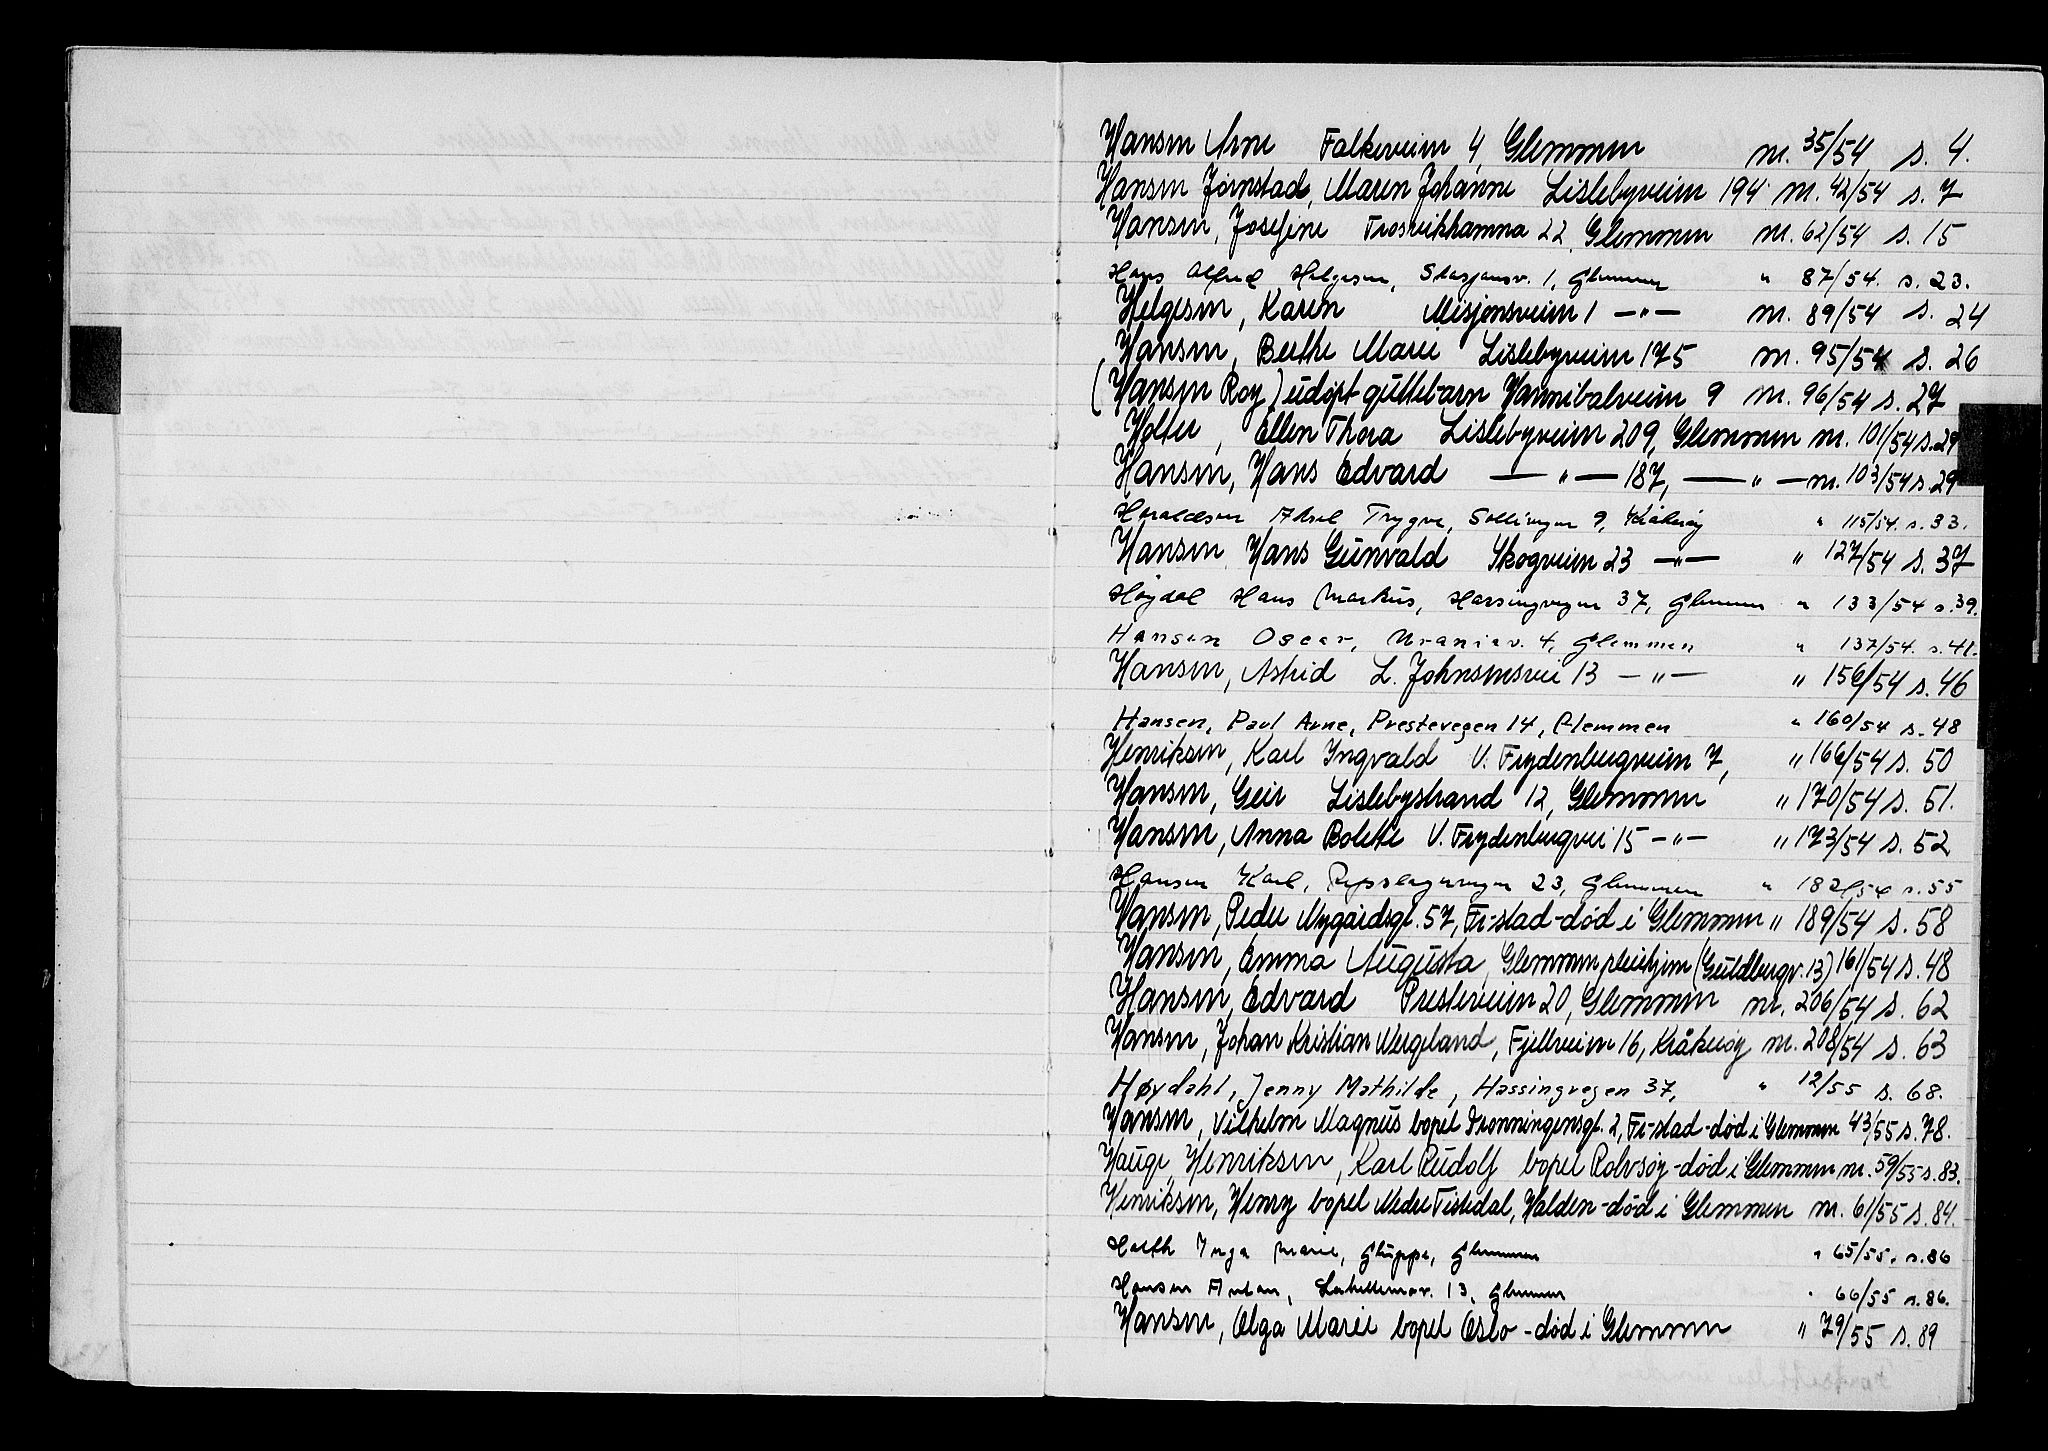 Hansen Arne Falkeveien 4, Glemmen nr. 35/54 s. 4.
Hansen Jørnstad, Maren Johanne Lislebyveien 194 nr. 42/54 s. 7
Hansen, Josefine Trosvikhamna 22, Glemmen nr. 62/54 s. 15
Hans Alfred Helgesen, Stasjonsv. 1, Glemmen " 87/54. s. 23.
Helgesen, Karen Misjonsveien 1 —"— nr. 89/54 s. 24
Hansen, Berthe Marie Lislebyveien 175 nr. 95/54 s. 26
(Hansen Roy) udøpt guttebarn Hannibalveien 9 nr. 96/54 s. 27
Holter, Ellen Thora Lislebyveien 209, Glemmen nr. 101/54 s. 29
Hansen, Hans Edvard —"— 187, —"— nr. 103/54 s. 29
Haraldsen Aksel Trygve, Sollivegen 9, Kråkerøy " 115/54. s. 33.
Hansen Hans Gunvald Skogveien 23 —"— " 127/54 s. 37
Høydal Hans Markus, Hassingvegen 37, Glemmen " 133/54 s. 39.
Hansen Oscar, Uraniav. 4, Glemmen " 137/54. s. 41.
Hansen, Astrid L. Johnsensvei 13 —"— " 156/54 s. 46
Hansen, Paul Arne, Prestevegen 14, Glemmen " 160/54 s. 48
Henriksen, Karl Ingvald V. Frydenbergveien 7, " 166/54 s. 50
Hansen, Geir Lislebystrand 12, Glemmen " 170/54 s. 51.
Hansen, Anna Bolette V. Frydenbergvei 15 —"— " 173/54 s. 52
Hansen Karl, Repslagervegen 23, Glemmen " 182/54 s. 55
Hansen, Peder Nygårdsgt. 57, Fr-stad - død i Glemmen " 189/54 s. 58
Hansen, Emma Augusta, Glemmen pleiehjem (Guldbergv. 13) 161/54 s. 48
Hansen, Edvard Presteveien 20, Glemmen nr. 206/54 s. 62
Hansen, Johan Kristian Wergeland, Fjellveien 16, Kråkerøy nr. 208/54 s. 63
Høydahl, Jenny Mathilde, Hassingvegen 37, " 12/55 s. 68.
Hansen, Vilhelm Magnus bopel Dronningensgt. 2, Fr-stad - død i Glemmen 43/55 s. 78.
Hauge, Henriksen, Karl Rudolf bopel Rolvsøy - død i Glemmen nr. 59/55 s. 83.
Henriksen, Henry bopel Nedre Tistedal, Halden - død i Glemmen nr. 61/55 s. 84.
Holth Inga Marie, Gluppe, Glemmen " 65/55. s. 86
Hansen Anton, 13, Glemmen " 66/55 s. 86.
Hansen, Olga Marie bopel Oslo - død i Glemmen " 79/55 s. 89